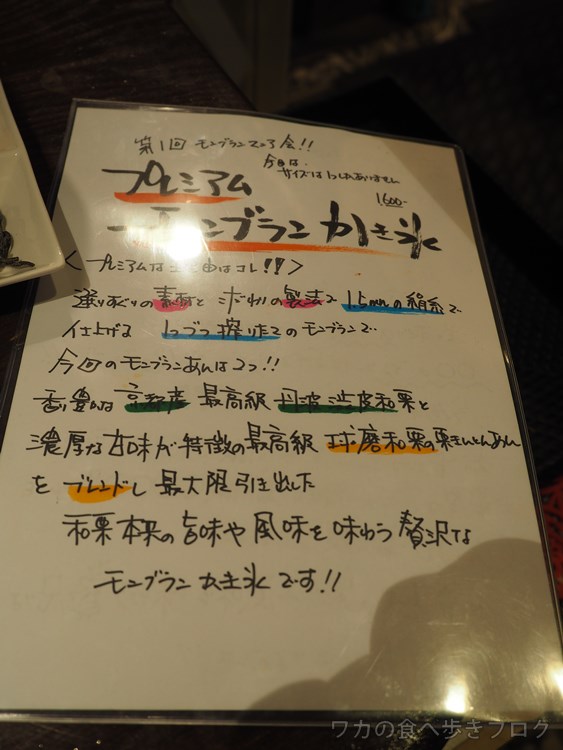 第1回 モンブランマニア会!!
今回は、
サイズは1つしかありません
プレミアム
1600-
モンブランかき氷
<プレミアムな理由はコレ!!>
選りすぐりの素材とこだわりの製法で 1.5mmの絹糸で
仕上げる 1つづつ搾りたてのモンブランで
今回のモンブランあんは2つ!!
香り豊かな 京都産 最高級 丹波渋皮和栗と
濃厚な甘味が特徴の最高級 球磨和栗の栗きんとんあん
を ブレンドし 最大限引き出した
和栗本来の旨味や風味を味わう贅沢な
モンブランかき氷です!!
ワカの食べ歩きブログ